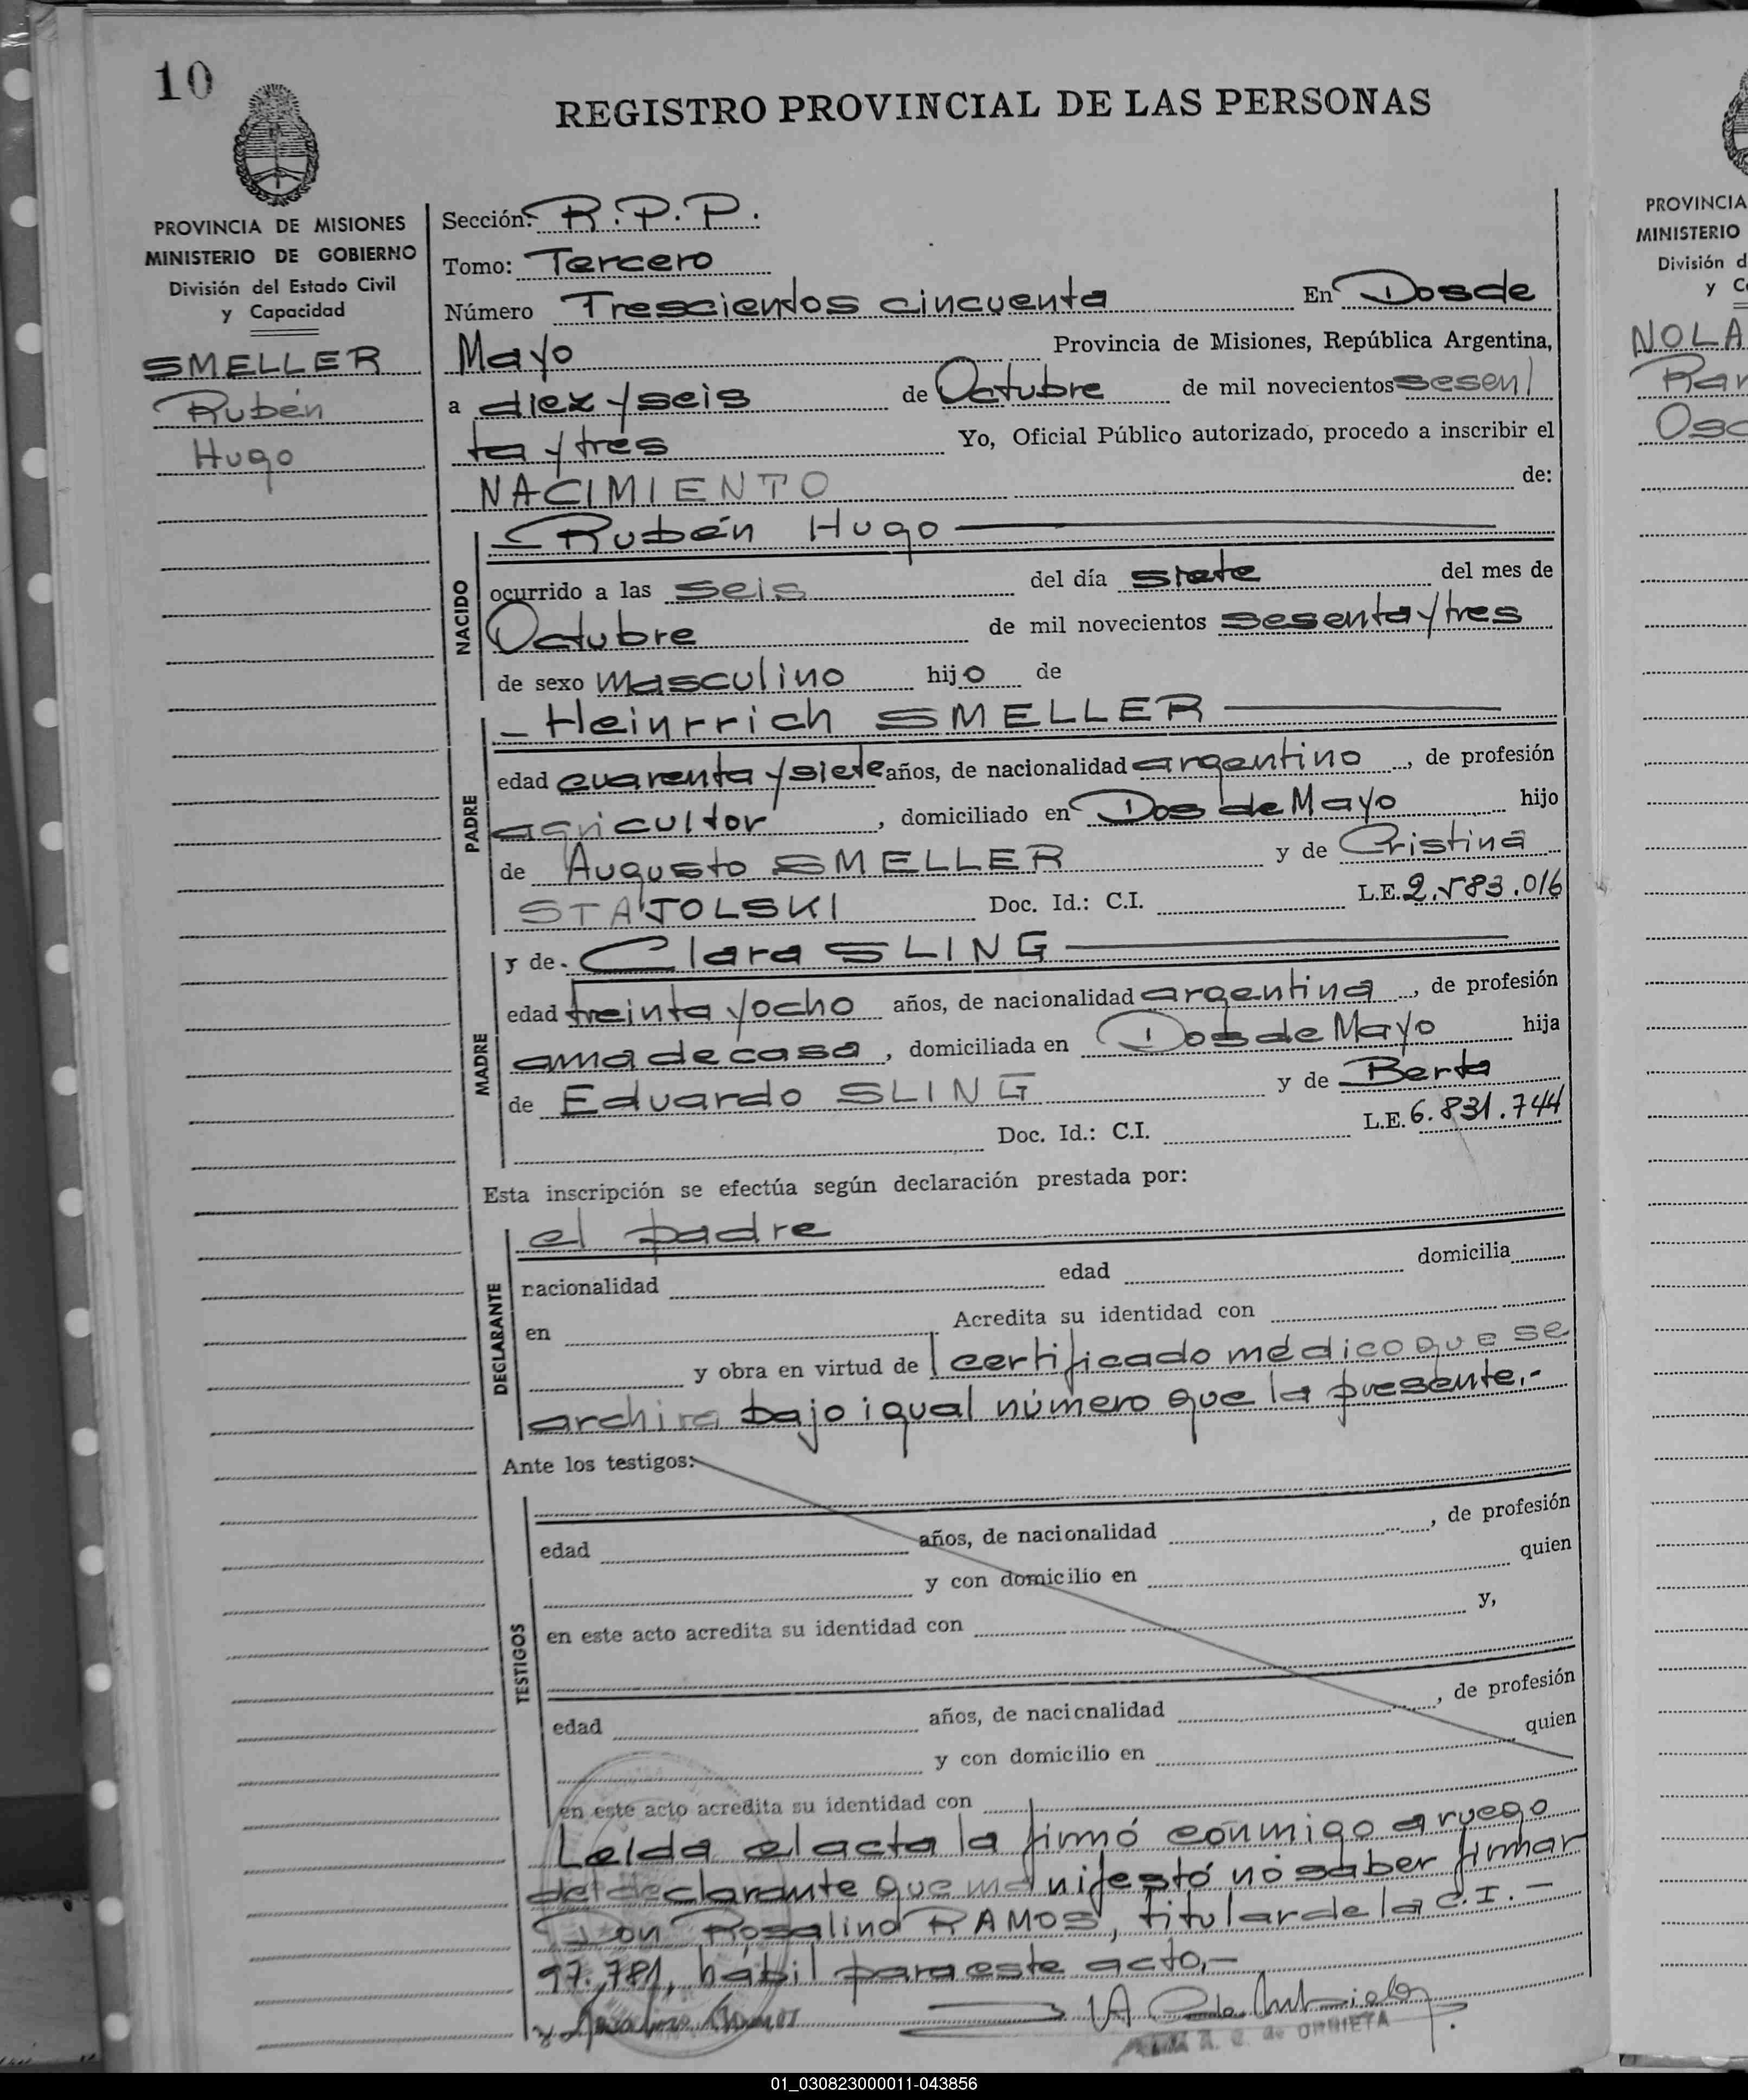 10
REGISTRO PROVINCIAL DE LAS PERSONAS
PROVINCIA DE MISIONES
MINISTERIO DE GOBIERNO
División del Estado Civil
y Capacidad
SMELLER
Rubén
Hugo
Sección: R.P.P.
Tomo: Tercero
Número Trescientos cincuenta En Dos de
Mayo Provincia de Misiones, República Argentina,
a diez y seis de Octubre de mil novecientos sesen
ta y tres Yo, Oficial Público autorizado, procedo a inscribir el
NACIMIENTO de:
NACIDO
Rubén Hugo
ocurrido a las seis del día siete del mes de
Octubre de mil novecientos sesenta y tres
de sexo masculino hijo de
PADRE
Heinrrich SMELLER
edad cuarenta y siete años, de nacionalidad argentino, de profesión
agricultor, domiciliado en Dos de Mayo hijo
de Augusto SMELLER y de Cristina
STAJOLSKI Doc. Id.: C.I. L.E. 2.583.016
MADRE
y de Clara SLING
edad treinta y ocho años, de nacionalidad argentina, de profesión
ama de casa, domiciliada en Dos de Mayo hija
de Eduardo SLING y de Berta
Doc. Id.: C.I. L.E. 6.831.744
Esta inscripción se efectúa según declaración prestada por:
DECLARANTE
el padre
nacionalidad edad domicilia
en Acredita su identidad con
y obra en virtud de l certificado médico que se
archiva bajo igual número que la presente.-
Ante los testigos:
TESTIGOS
edad años, de nacionalidad, de profesión
y con domicilio en quien
en este acto acredita su identidad con y,
edad años, de nacionalidad, de profesión
y con domicilio en quien
en este acto acredita su identidad con
Leída el acta la firmó conmigo a ruego
del declarante que manifestó no saber firmar
Don Rosalino RAMOS, titular de la C.I. -
97.781, hábil para este acto.-
de URRIETA
PROVINCIA
MINISTERIO
División d
y C
NOLA
Ram
Osc
01_030823000011-043856